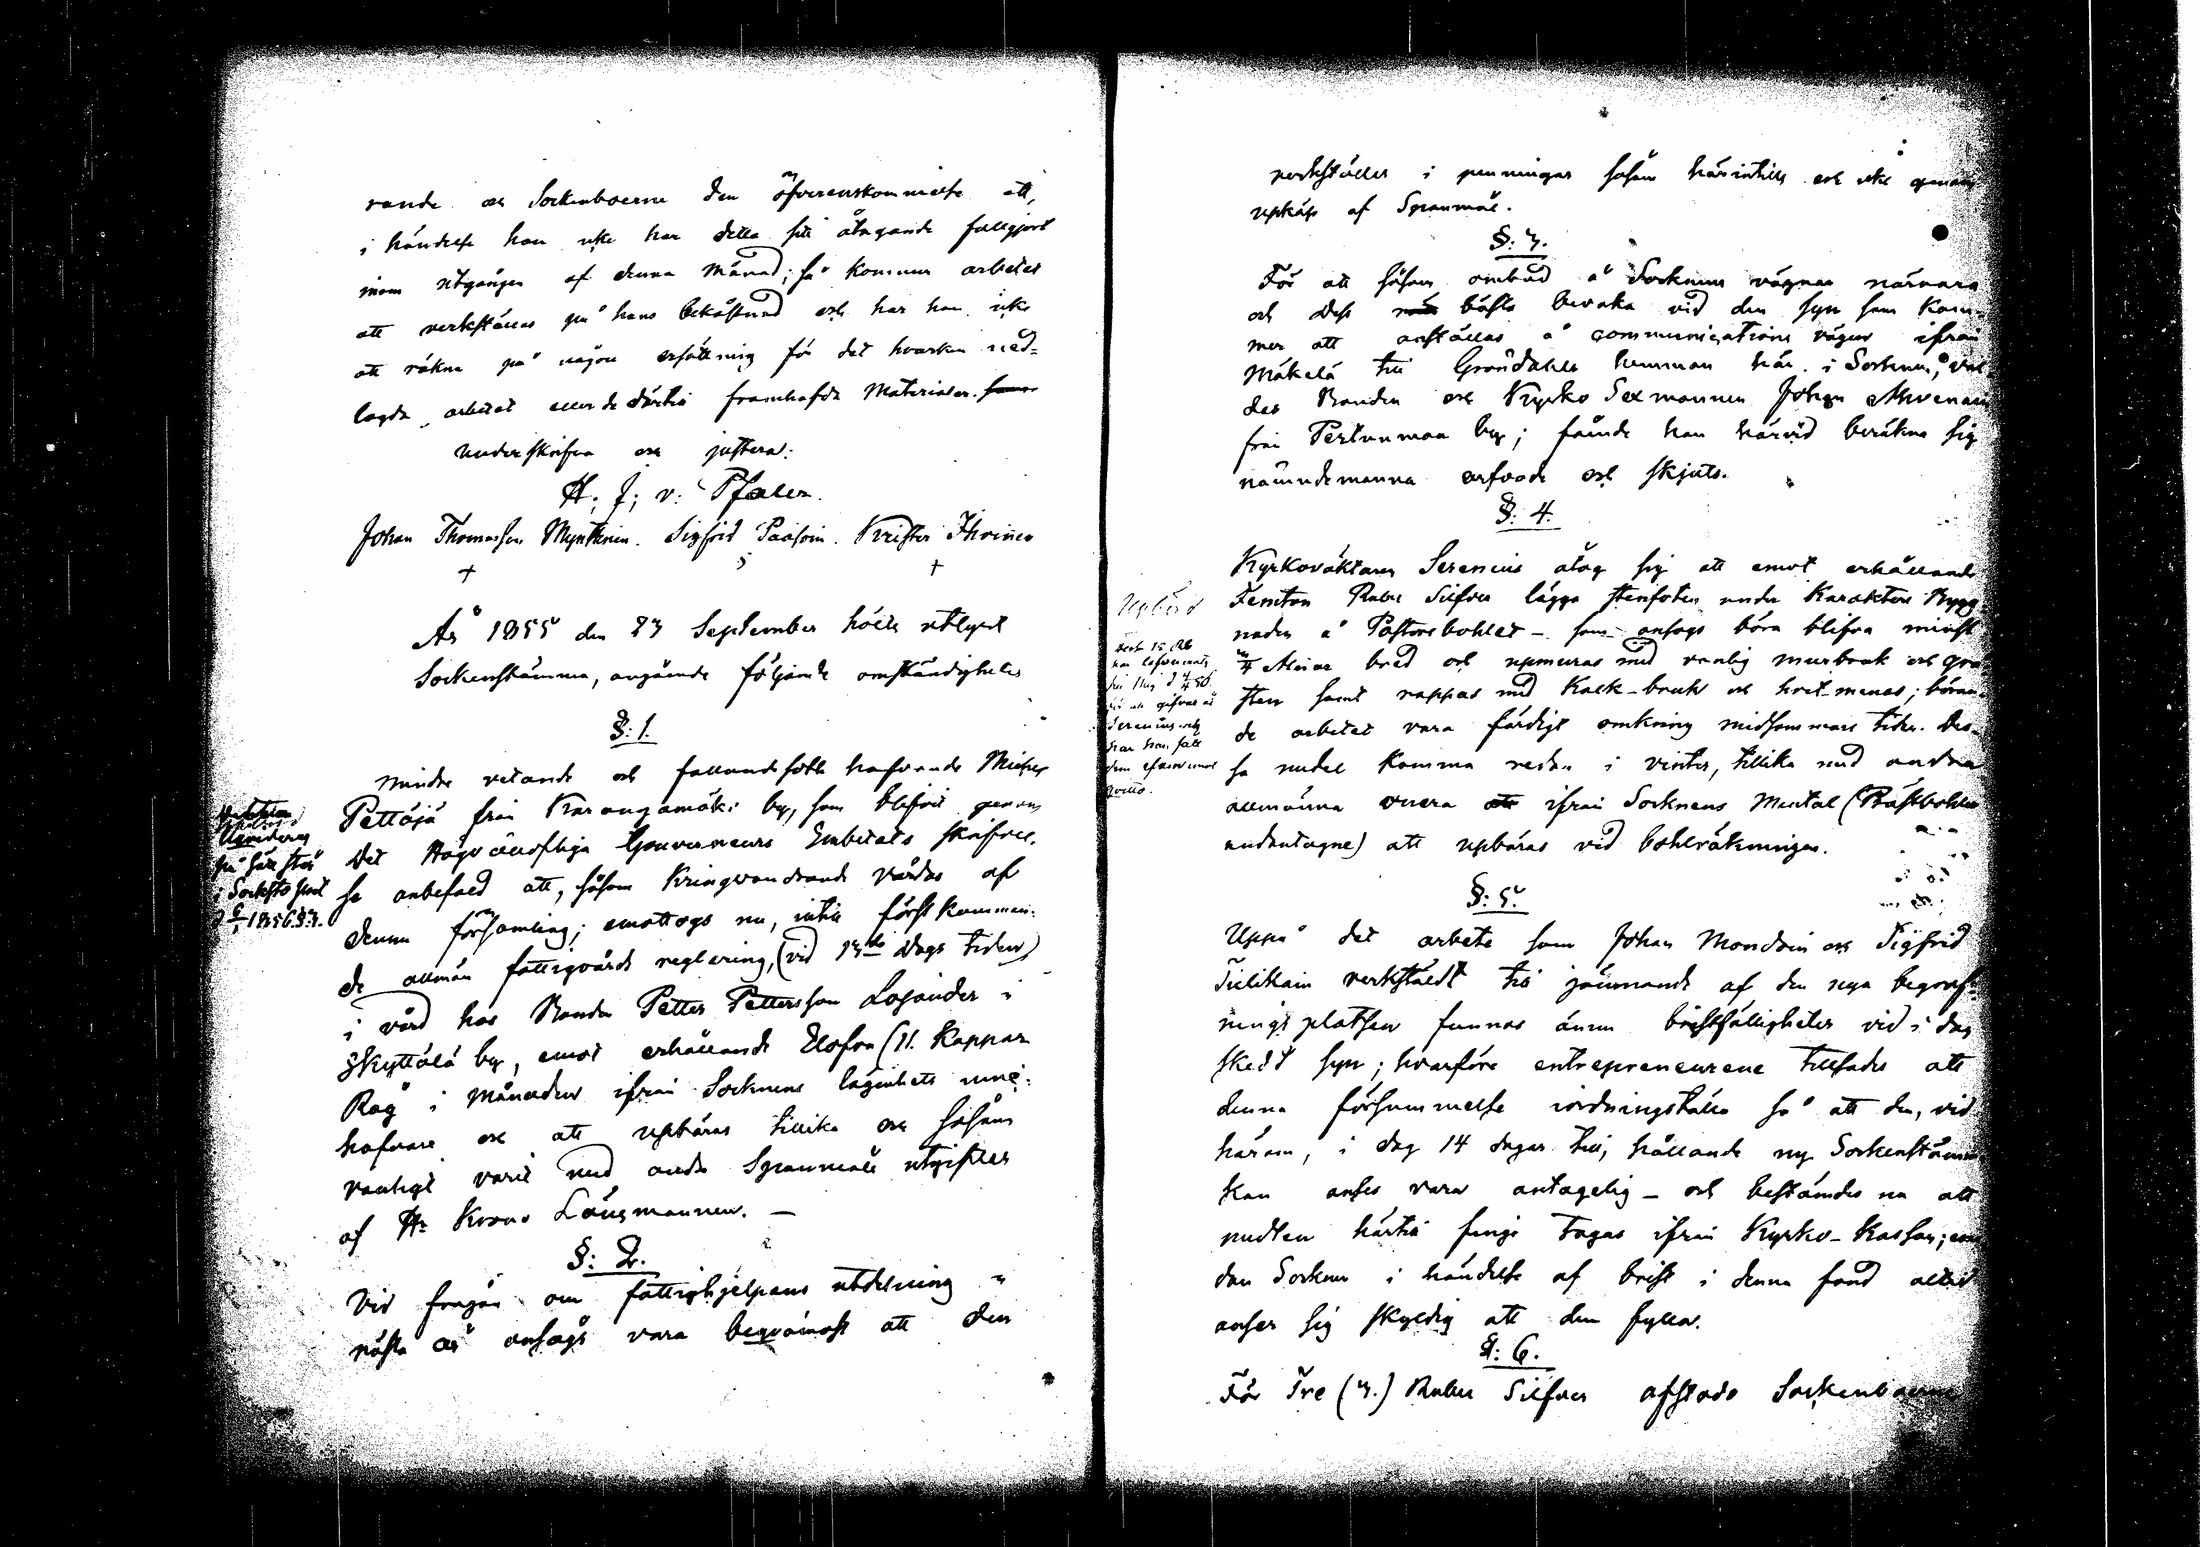 rande och Sockenboerne den öfverenskommelse att,
i händelse han icke har detta sitt åtagande fullgjort
inom utgången af denna Månad; så kommer arbetet
att verkställas på hans bekåstnad och har han icke
att räkna på någon ersättning för det hvarken ned-
lagda arbetet eller de därtill framhafda Materialer.
Underskrifva och justera:
H. J; v: Pfaler.
Johan Thomasson Myntinen. Sigfrid Paasoin. Krister Ihvinen
År 1855 den 23 September hölts utlyst
Sockenstämma, angående följande omständigheter
§: 1.
Mindre vetande och fallandesoth hafvande Michel
Pettäjä från Karangamäki by, som blifvit genom
Det Högvällofliga Gouverneurs Embetets skrifvel-
se anbefald att, såsom Kringvandrande vårdas af
denna församling; emottogs nu, intill först kommen-
de allmän fattigvårds reglering, (vid 13de Dags tiden)
i vård hos Bonden Petter Pettersson Lojander i
Skyttälä by, emot erhållande Elofva (11. Kappar
Råg i Månaden ifrån Socknens lägenhets inne-
hafvare och att uppbäras tillika och såsom
vanligt varit med andra Spanmåls utgifter
af Hr Krono Länsmannen. —
§: 2.
Vid frågan om fattighjelpens utdelning
nästa år ansågs vara beqvämast att den
verkställes i penningar såsom härintills och icke genom
upköp af Spanmål.
§: 3.
För att såsom ombud å Socknens vägnar närvara
och dess bästa bevaka vid den syn som kom-
mer att anställas å communications vägen ifrån
Mäkelä till Gröndahls hemman här i Socknen, val-
des Bonden och Kyrko Sexmannen Johan Ahvenain
från Pertunmaa by; sånde han härvid beräkna sig
nämndemanna arfvode och skjuts.
§: 4.
Kyrkoväktaren Serenius åtog sig att emot erhållande
Femton Rubel Silfver lägga stenfoten under Karakters Bygg
naden å Pastorsbohlet — som ansågs böra blifva minst
Alnar bred och upmuras med vanlig murbruk och grå
sten samt rappas med Kalk-bruk och hvit-menas; böran-
de arbetet vara färdigt omkring midsommars tiden. Des-
sa medel komma redan i vinter, tillika med andra
allmänna utgå ifrån Socknens Mantal (Prästbohlen
undantagne) att upbäras vid bohlräkningar.
Upbörd
§: 5.
Uppå det arbete som Johan Mondoin och Sigfrid
Tielikain verkstäldt till jämnande af den nya begraf-
nings platsen funnos ännu bristfälligheter vid i dag
skedd syn; hvarföre entrepreneurerne tillsades att
denna försummelse iordningställa så att den, vid
härom, i dag 14 dagar till, hållande ny Sockenstämma
kan anses vara antagelig — och bestämdes nu att
medlen härtill finge tagas ifrån Kyrko-Kassan; me
dan Socknen i händelse af brist i denna fond alltid
anser sig skyldig att den fylla.
§: 6.
För Tre (3.) Rubel Silfver afstodo Sockenboerne